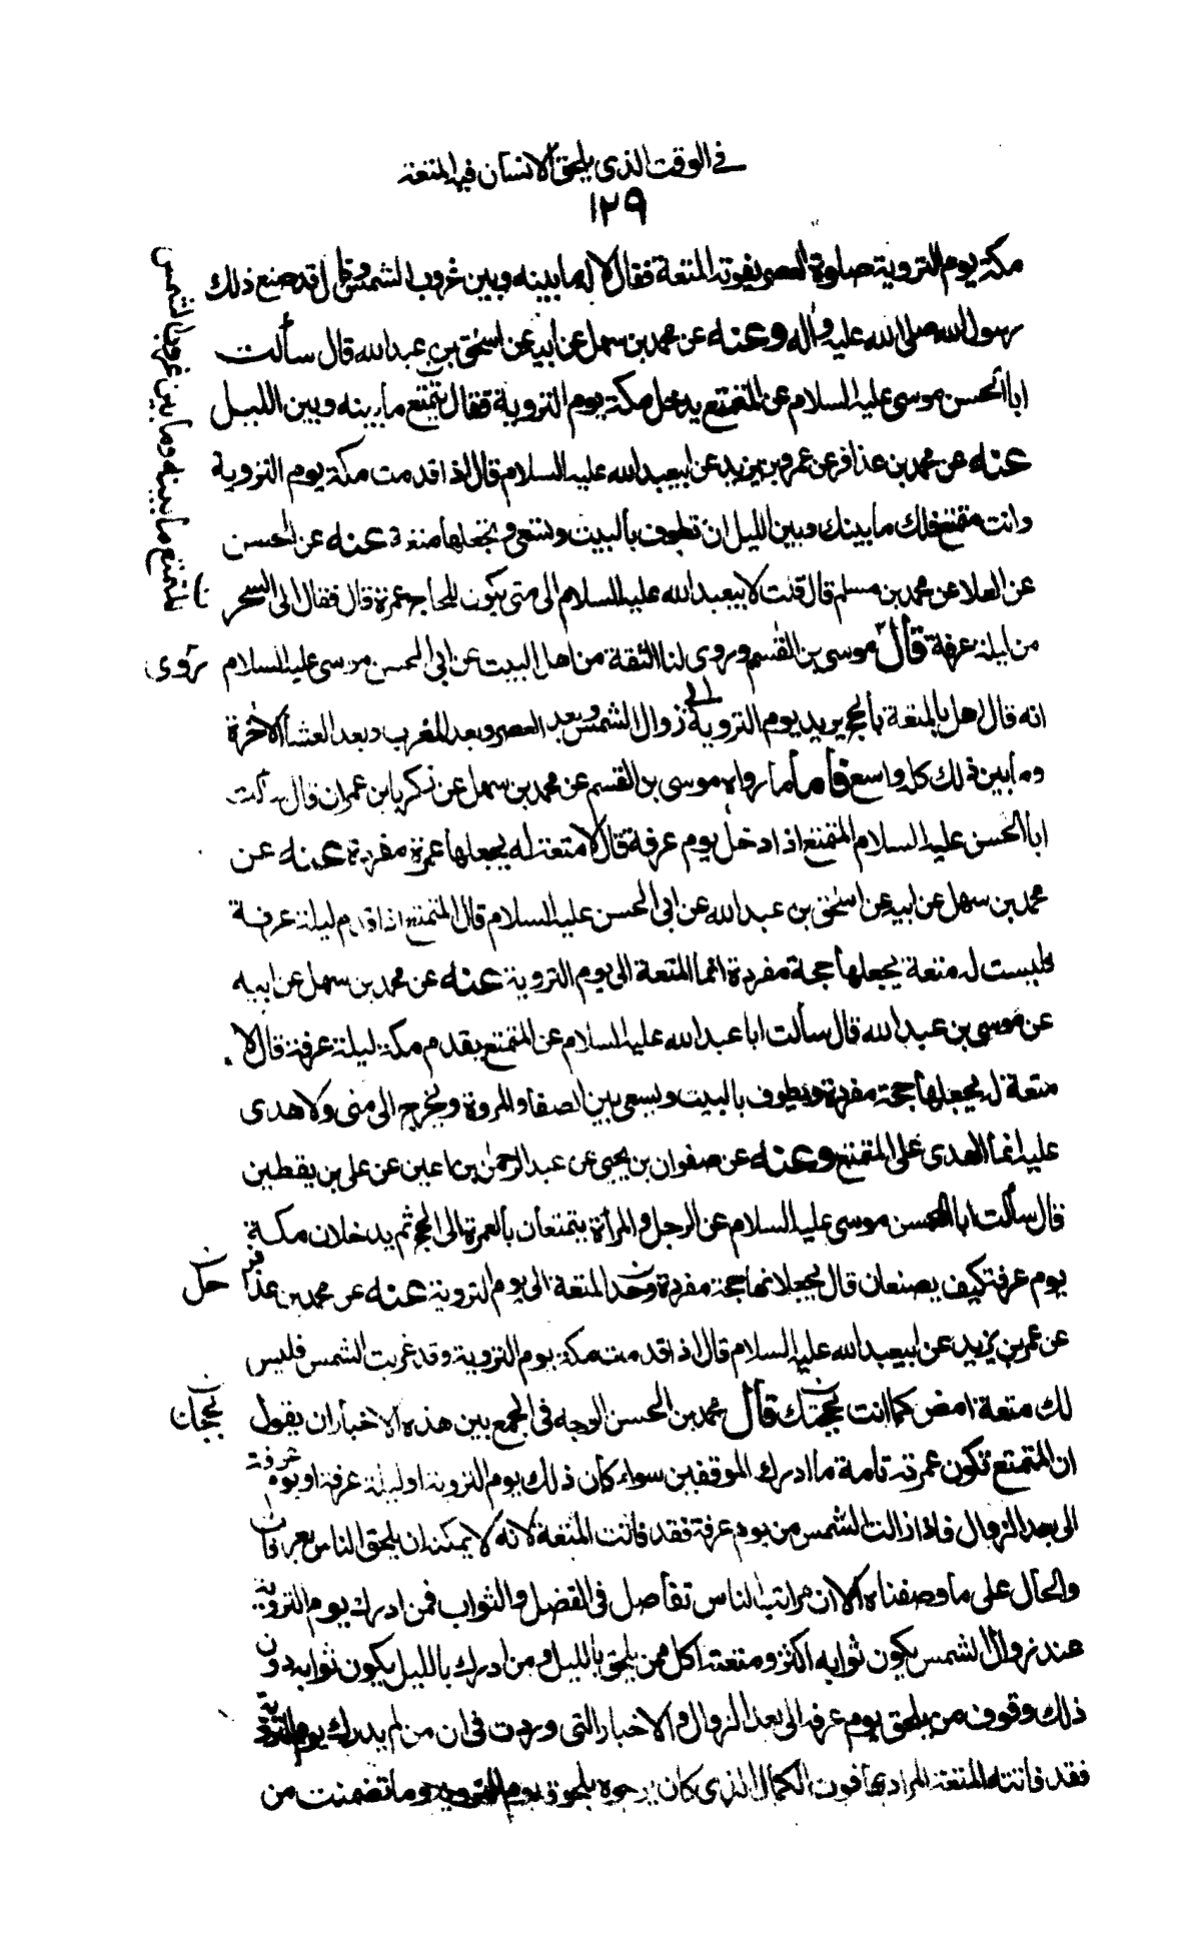 في الوقت الذى يلحق الانسان فيه المتعة
١٢٩
مكة يوم التروية صلوة العصر يفوته المتعة فقال لا له ما بينه وبين غروب الشمس وقال قد صنع ذلك
رسول الله صلى الله عليه وآله وعنه عن محمد بن سهل عن ابيه عن اسحق بن عبد الله قال سألت
ابا الحسن موسى عليه السلام عن المتمتع يدخل مكة يوم التروية فقال يتمتع ما بينه وبين الليل
عنه عن محمد بن عذافر عن عمرو بن يزيد عن ابيعبد الله عليه السلام قال اذا قدمت مكة يوم التروية
وانت متمتع فلك ما بينك وبين الليل ان تطوف بالبيت وتسعى وتجعلها متعة عنه عن الحسن
عن العلا عن محمد بن مسلم قال قلت لابيعبد الله عليه السلام الى متى يكون للحاج عمرة قال فقال الى السحر
من ليلة عرفة قال موسى بن القسم وروى لنا الثقة من اهل البيت عن ابى الحسن موسى عليه السلام
انه قال اهل بالمتعة بالحج يريد يوم التروية الى زوال الشمس وبعد العصر وبعد المغرب وبعد العشأ الاخرة
وما بين ذلك كله واسع فأما ما رواه موسى بن القسم عن محمد بن سهل عن زكريا بن عمران قال سألت
ابا الحسن عليه السلام المتمتع اذا دخل يوم عرفة قال لا متعة له يجعلها عمرة مفردة عنه عن
محمد بن سهل عن ابيه عن اسحق بن عبد الله عن ابى الحسن عليه السلام قال المتمتع اذا قدم ليلة عرفة
فليست له متعة يجعلها حجة مفردة انما المتعة الى يوم التروية عنه عن محمد بن سهل عن ابيه
عن موسى بن عبد الله قال سألت ابا عبد الله عليه السلام عن المتمتع يقدم مكة ليلة عرفة قال لا
متعة له يجعلها حجة مفردة ويطوف بالبيت ويسعى بين الصفا والمروة ويخرج الى منى ولا هدى
عليه انما الهدى على المتمتع وعنه عن صفوان بن يحيى عن عبد الرحمن بن اعين عن على بن يقطين
قال سألت ابا الحسن موسى عليه السلام عن الرجل والمرأة يتمتعان بالعمرة الى الحج ثم يدخلان مكة
يوم عرفة كيف يصنعان قال يجعلانها حجة مفردة وحد المتعة الى يوم التروية عنه عن محمد بن عذافر
عن عمر بن يزيد عن ابيعبد الله عليه السلام قال اذا قدمت مكة يوم التروية وقد غربت الشمس فليس
لك متعة امض كما انت بحجتك قال محمد بن الحسن الوجه في الجمع بين هذه الاخبار ان يقول
ان المتمتع تكون عمرته تامة ما ادرك الموقفين سواء كان ذلك يوم التروية او ليلة عرفة او يوم عرفة
الى بعد الزوال فاذا زالت الشمس من يوم عرفة فقد فاتت المتعة لانه لا يمكنه ان يلحق الناس بعرفات
والحال على ما وصفناه الا ان مراتب الناس تفاصل فى الفضل والثواب فمن ادرك يوم التروية
عند زوال الشمس يكون ثوابه اكثر ومتعته اكمل ممن يلحق بالليل ومن ادرك بالليل يكون ثوابه دون
ذلك وفوق من يلحق يوم عرفة الى بعد الزوال والاخبار التى وردت فى ان من لم يدرك يوم التروية
فقد فاتته المتعة المراد بها فوت الكمال الذى كان يرجوه بلحوق يوم التروية وما تضمنت من
المتمتع ما بينه وما بين غروب الشمس
روى
بحجتك